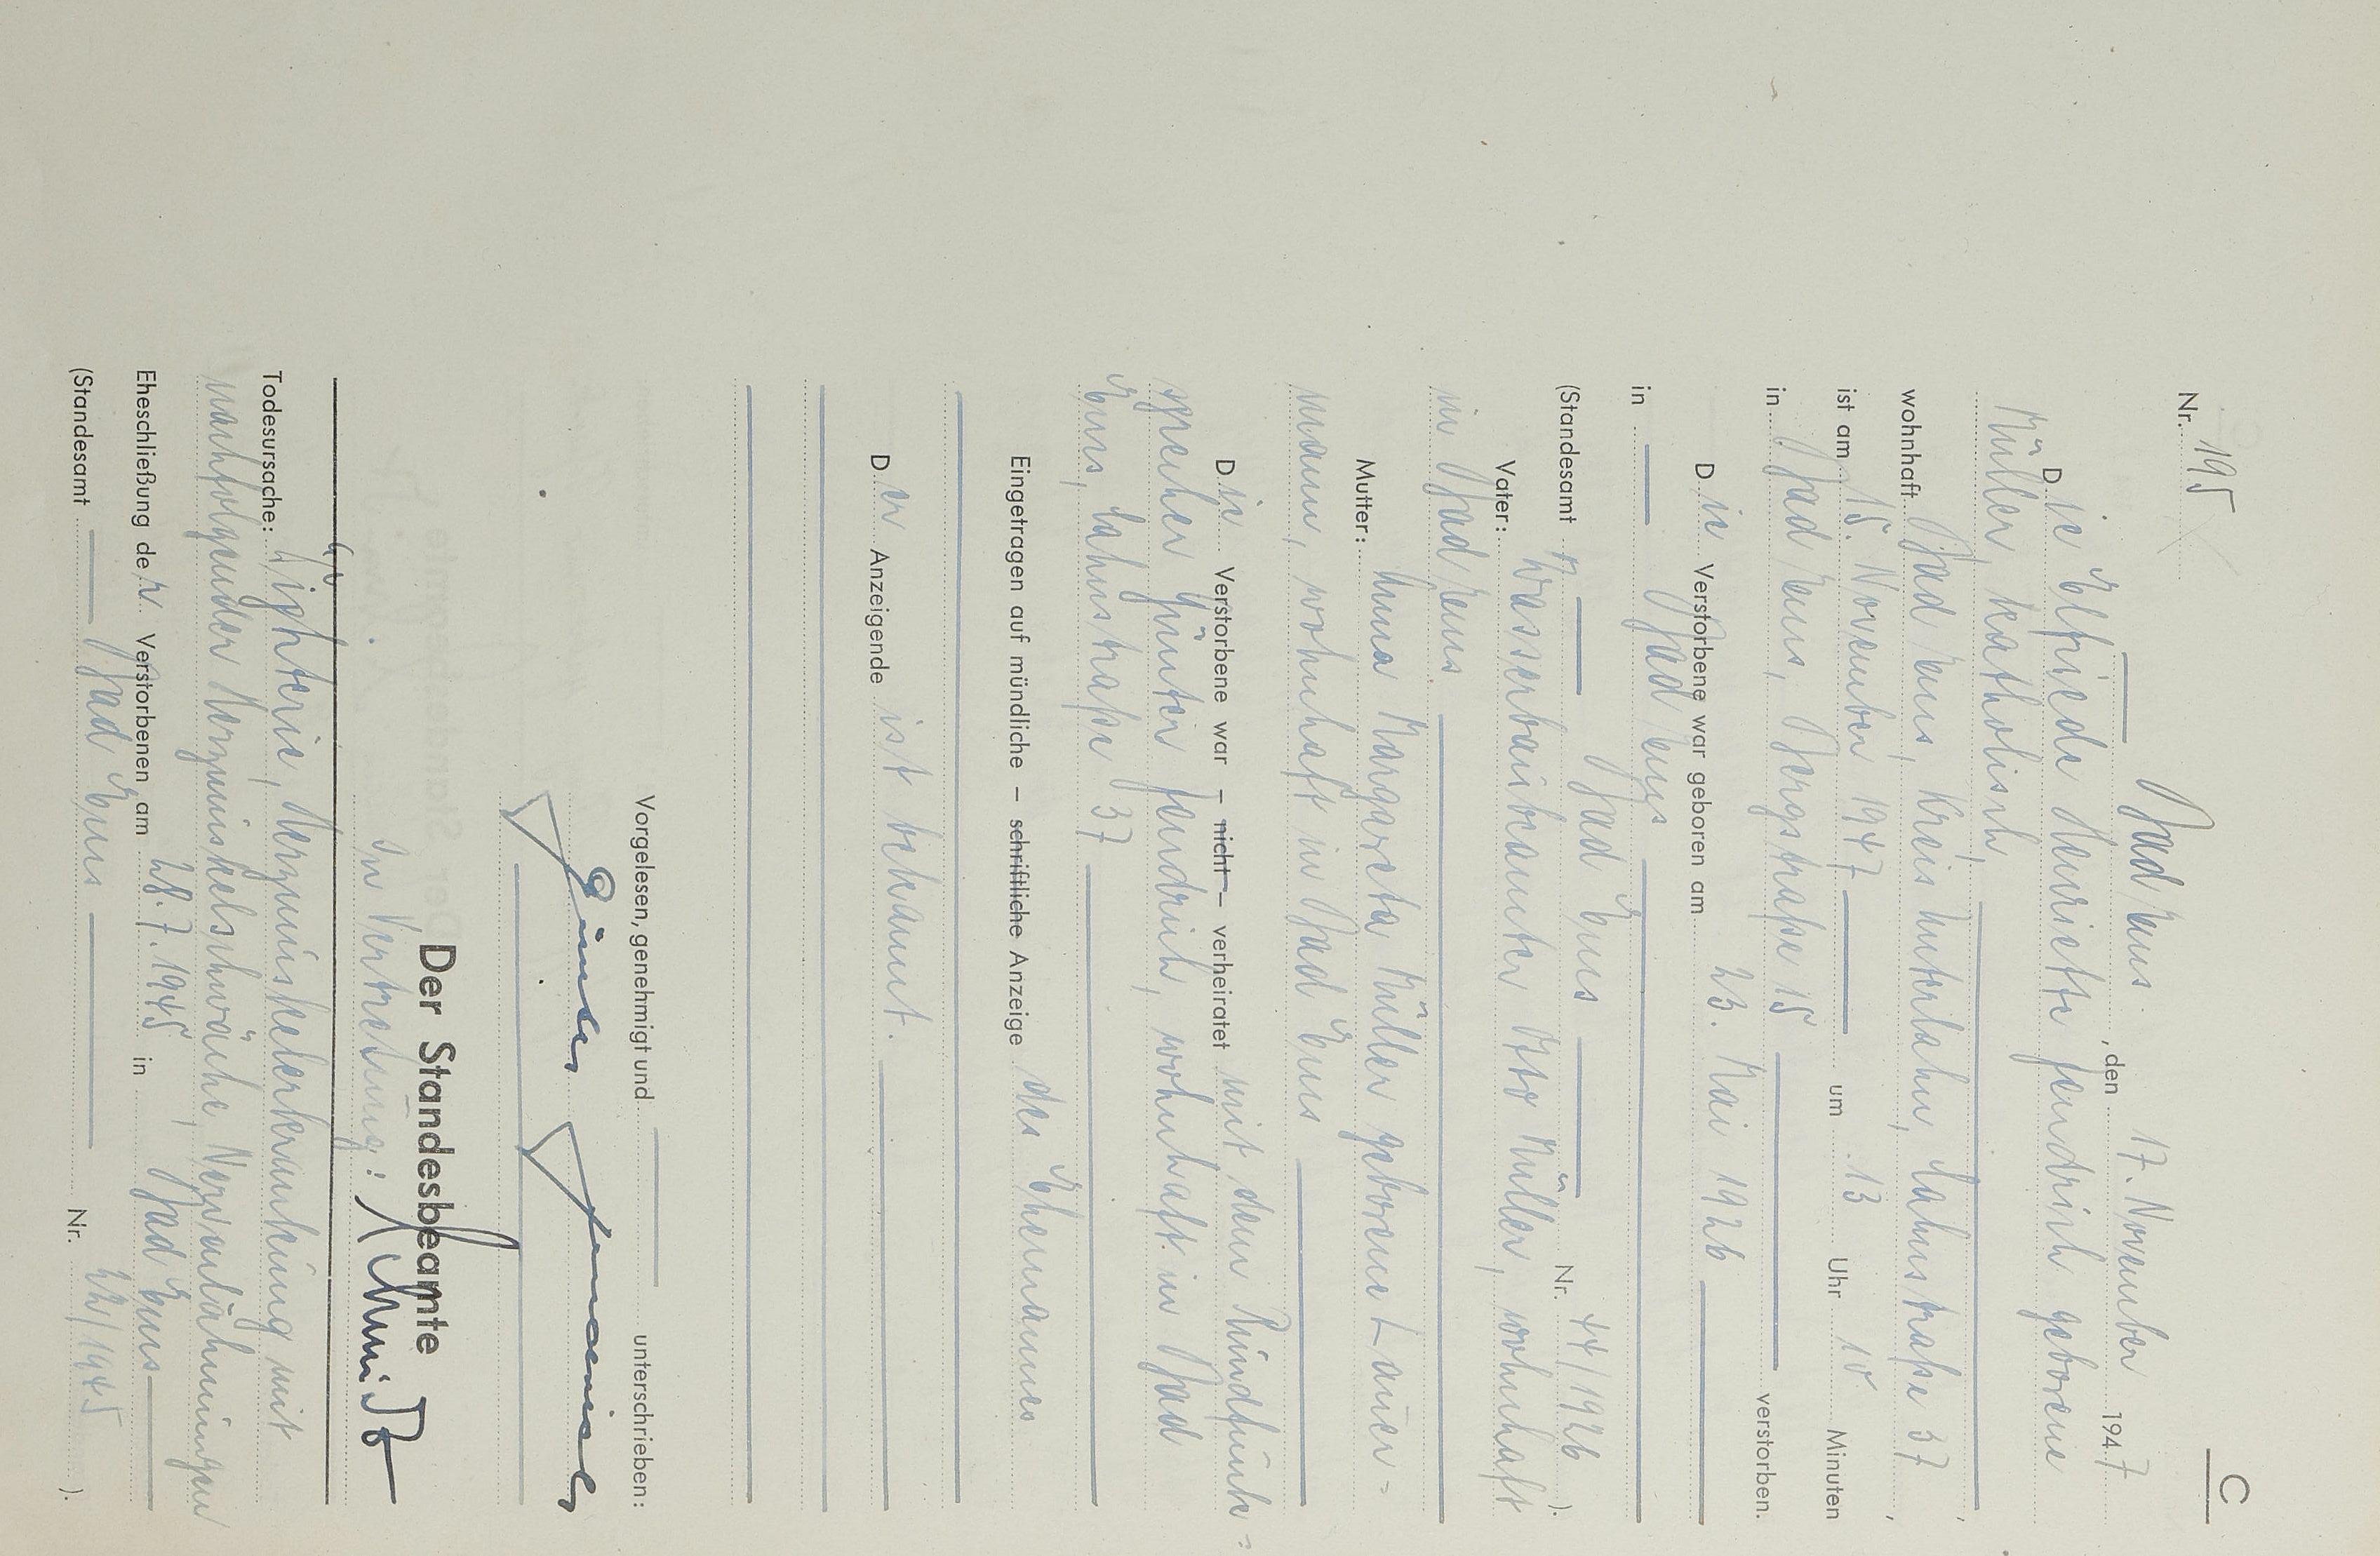 C
Nr. 195
Bad Ems, den 17. November 1947
Die Elfriede Henriette Jendrich geborene
Müller, katholisch,
wohnhaft Bad Ems, Kreis Unterlahn, Lahnstraße 37,
ist am 15. November 1947 um 13 Uhr 10 Minuten
in Bad Ems, Bergstraße 15 verstorben.
Die Verstorbene war geboren am 23. Mai 1926
in Bad Ems
(Standesamt Bad Ems Nr. 44/1926).
Vater: Wasserbaubeamter Otto Müller, wohnhaft
in Bad Ems.
Mutter: Anna Margareta Müller geborene
mann, wohnhaft in Bad Ems
Die Verstorbene war – nicht – verheiratet mit dem Rundfunk-
sprecher Günter Jendrich, wohnhaft in Bad
Ems, Lahnstraße 37
Eingetragen auf mündliche – schriftliche Anzeige des Ehemannes
Der Anzeigende ist bekannt.
Vorgelesen, genehmigt und unterschrieben:
Günter
Der Standesbeamte
In Vertretung: Schmidt
Todesursache: Diphterie, Herzmuskelerkrankung mit
nachfolgender Herzmuskelschwäche,
Eheschließung der Verstorbenen am 28.7.1945 in Bad Ems
(Standesamt Bad Ems Nr. 22/1945).